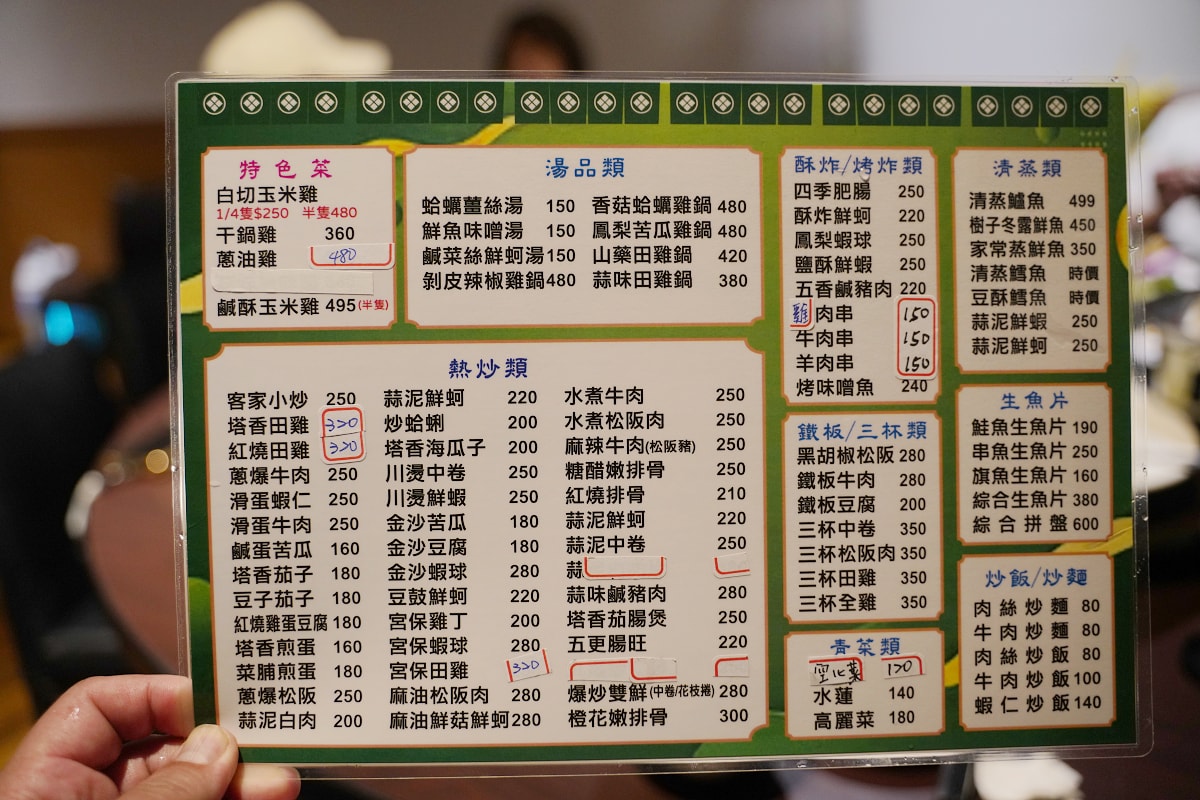 特色菜
白切玉米雞
1/4隻$250 半隻480
干鍋雞 360
蔥油雞 480
鹹酥玉米雞 495(半隻)
湯品類
蛤蠣薑絲湯 150 香菇蛤蠣雞鍋 480
鮮魚味噌湯 150 鳳梨苦瓜雞鍋 480
鹹菜絲鮮蚵湯 150 山藥田雞鍋 420
剝皮辣椒雞鍋 480 蒜味田雞鍋 380
熱炒類
客家小炒 250 蒜泥鮮蚵 220 水煮牛肉 250
塔香田雞 320 炒蛤蜊 200 水煮松阪肉 250
紅燒田雞 320 塔香海瓜子 200 麻辣牛肉(松阪豬) 250
蔥爆牛肉 250 川燙中卷 250 糖醋嫩排骨 250
滑蛋蝦仁 250 川燙鮮蝦 250 紅燒排骨 210
滑蛋牛肉 250 金沙苦瓜 180 蒜泥鮮蚵 220
鹹蛋苦瓜 160 金沙豆腐 180 蒜泥中卷 250
塔香茄子 180 金沙蝦球 280 蒜
豆子茄子 180 豆鼓鮮蚵 220 蒜味鹹豬肉 280
紅燒雞蛋豆腐 180 宮保雞丁 200 塔香茄腸煲 250
塔香煎蛋 160 宮保蝦球 280 五更腸旺 220
菜脯煎蛋 180 宮保田雞 320
蔥爆松阪 250 麻油松阪肉 280 爆炒雙鮮(中卷/花枝捲) 280
蒜泥白肉 200 麻油鮮菇鮮蚵 280 橙花嫩排骨 300
酥炸/烤炸類
四季肥腸 250
酥炸鮮蚵 220
鳳梨蝦球 250
鹽酥鮮蝦 250
五香鹹豬肉 220
雞肉串 150
牛肉串 150
羊肉串 150
烤味噌魚 240
鐵板/三杯類
黑胡椒松阪 280
鐵板牛肉 280
鐵板豆腐 200
三杯中卷 350
三杯松阪肉 350
三杯田雞 350
三杯全雞 350
青菜類
空心菜 120
水蓮 140
高麗菜 180
清蒸類
清蒸鱸魚 499
樹子冬露鮮魚 450
家常蒸鮮魚 350
清蒸鱈魚 時價
豆酥鱈魚 時價
蒜泥鮮蝦 250
蒜泥鮮蚵 250
生魚片
鮭魚生魚片 190
串魚生魚片 250
旗魚生魚片 160
綜合生魚片 380
綜合拼盤 600
炒飯/炒麵
肉絲炒麵 80
牛肉炒麵 80
肉絲炒飯 80
牛肉炒飯 100
蝦仁炒飯 140